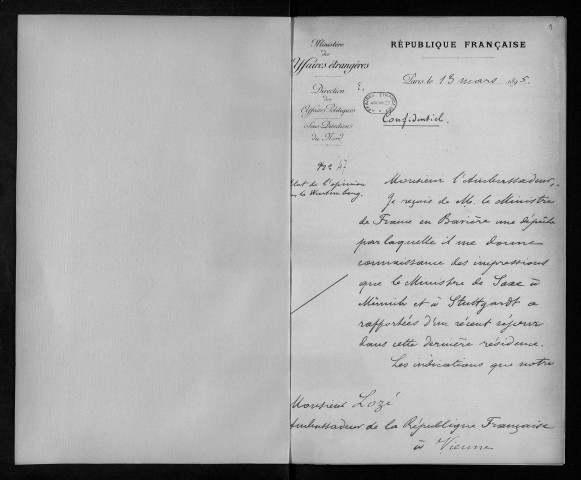 Ministère
des
Affaires étrangères
Direction
des
Affaires Politiques
Sous-Direction
du Nord
RÉPUBLIQUE FRANÇAISE
Paris, le 13 mars 1895.
Confidentiel.
N° 47
Etat de l'opinion
en Wurtemberg.
Monsieur l'Ambassadeur,
Je reçois de M. le Ministre
de France en Bavière une dépêche
par laquelle il me donne
connaissance des impressions
que le Ministre de Saxe à
Münich et à Stuttgardt a
rapportées d'un récent séjour
dans cette dernière résidence.
Les indications que notre
Monsieur Lozé
Ambassadeur de la République Française
à Vienne